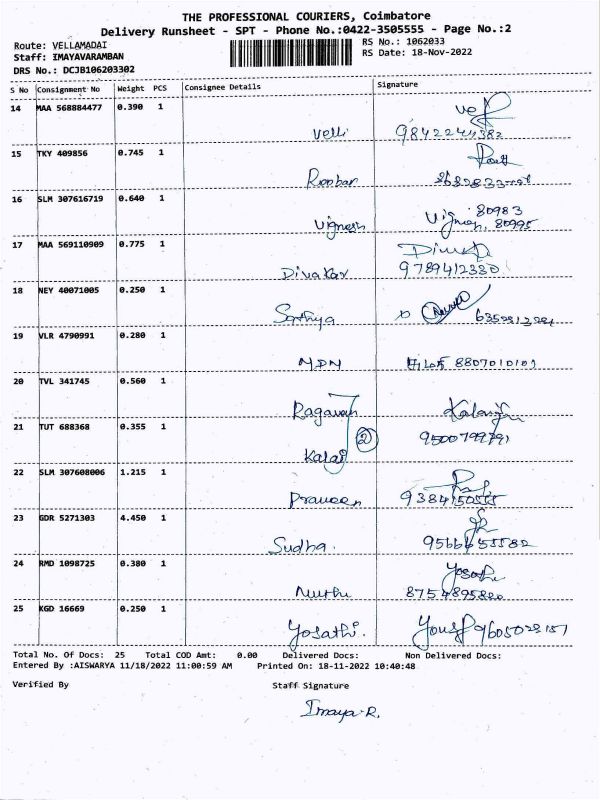 THE PROFESSIONAL COURIERS, Coimbatore
Delivery Runsheet - SPT - Phone No.:0422-3505555 - Page No.:2
Route: VELLAMADAI
RS No.: 1062033
Staff: IMAYAVARAMBAN
RS Date: 18-Nov-2022
DRS No.: DCJB106203302
S No Consignment No Weight PCS Consignee Details Signature
14 MAA 568884477 0.390 1
Velli 9842241382
15 TKY 409856 0.745 1
16 SLM 307616719 0.640 1
80983
Vignesh 80995
17 MAA 569110909 0.775 1
Divakar 9789412330
18 NEY 40071005 0.250 1
Sathya
19 VLR 4790991 0.280 1
MDN 8807010101
20 TVL 341745 0.560 1
Ragavan
21 TUT 688368 0.355 1
2
Kalai
22 SLM 307608006 1.215 1
Praveen
23 GDR 5271303 4.450 1
Sudha
24 RMD 1098725 0.380 1
Muthu 8754895820
25 KGD 16669 0.250 1
Yosathi.
Total No. Of Docs: 25 Total COD Amt: 0.00 Delivered Docs: Non Delivered Docs:
Entered By :AISWARYA 11/18/2022 11:00:59 AM Printed On: 18-11-2022 10:40:48
Verified By Staff Signature
Imaya.R.